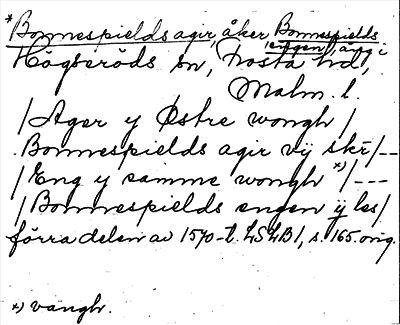 *Bonnespields agir, åker Bonnespields
engen, äng i
Högseröds sn, Frosta hd,
Malm. l.
/Ager y Østre wongh/
Bonnespields agir vij skr/--
/Eng y samme wongh *)/---
/Bonnespields engen ij les/
förra delen av 1570-t. LSLB1, s. 165. orig.
*) vangh.